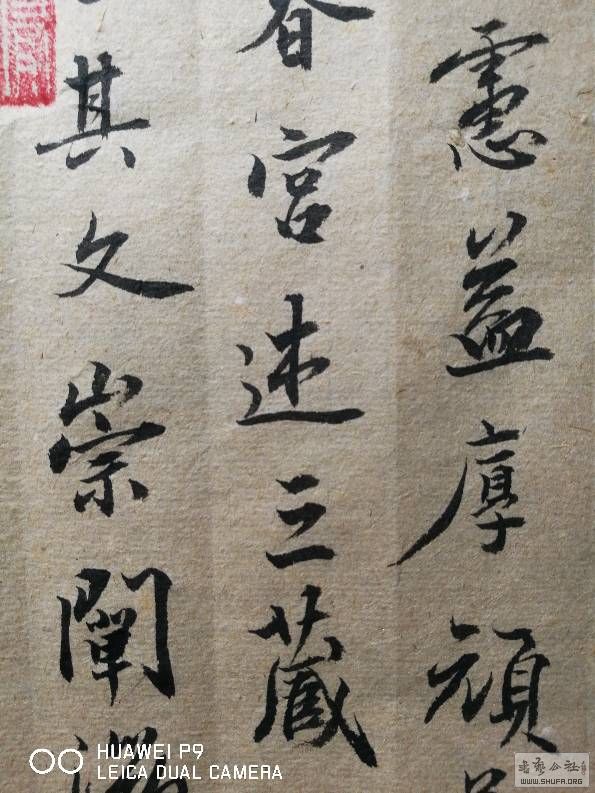 慮益厚顏
春宮述三藏
其文崇闡
HUAWEI P9
LEICA DUAL CAMERA
WWW.SHUFA.ORG